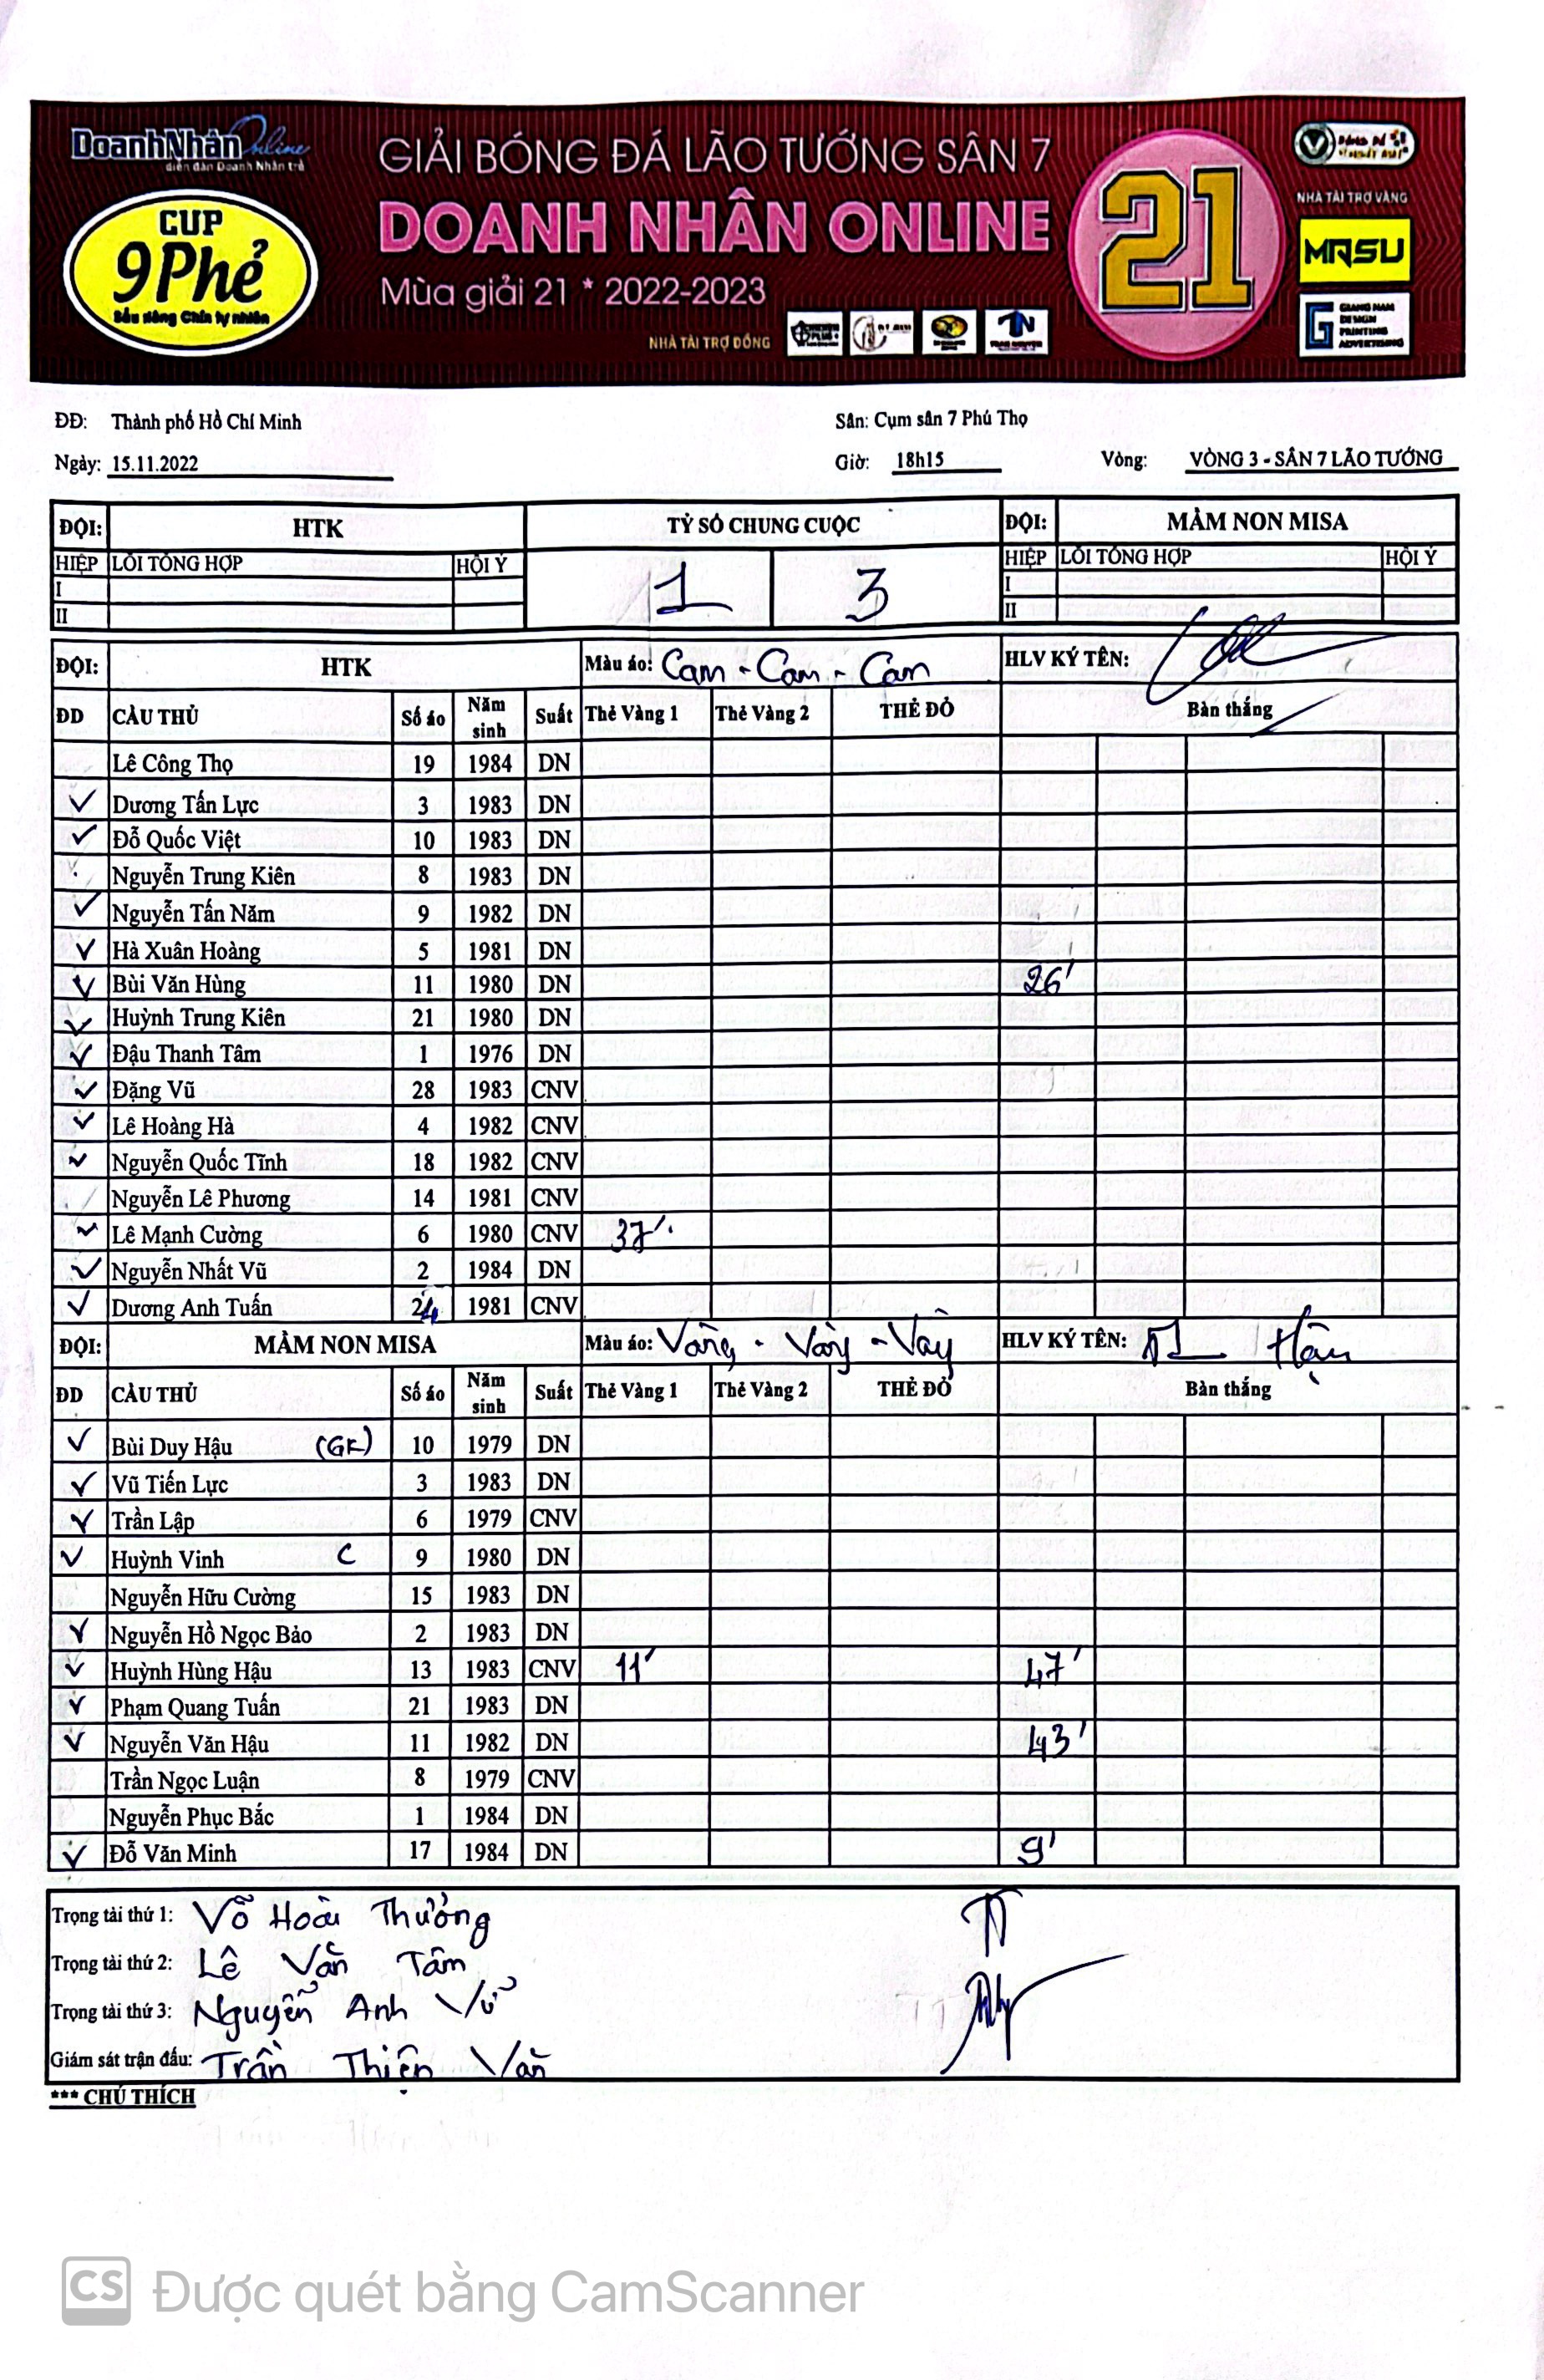 DoanhNhân Online
diễn đàn Doanh Nhân trẻ
CUP
9Phẻ
Sầu riêng Chín tự nhiên
GIẢI BÓNG ĐÁ LÃO TƯỚNG SÂN 7
DOANH NHÂN ONLINE
Mùa giải 21 * 2022-2023
NHÀ TÀI TRỢ ĐỒNG
21
NHÀ TÀI TRỢ VÀNG
MASU
GIANG NAM
DESIGN
PRINTING
ADVERTISING
ĐĐ: Thành phố Hồ Chí Minh Sân: Cụm sân 7 Phú Thọ
Ngày: 15.11.2022 Giờ: 18h15 Vòng: VÒNG 3 - SÂN 7 LÃO TƯỚNG
ĐỘI: HTK TỶ SỐ CHUNG CUỘC ĐỘI: MẦM NON MISA
HIỆP LỖI TỔNG HỢP HỘI Ý 1 3 HIỆP LỖI TỔNG HỢP HỘI Ý
I I
II II
ĐỘI: HTK Màu áo: Cam - Cam - Cam HLV KÝ TÊN:
ĐD CẦU THỦ Số áo Năm sinh Suất Thẻ Vàng 1 Thẻ Vàng 2 THẺ ĐỎ Bàn thắng
Lê Công Thọ 19 1984 DN
✓ Dương Tấn Lực 3 1983 DN
✓ Đỗ Quốc Việt 10 1983 DN
Nguyễn Trung Kiên 8 1983 DN
✓ Nguyễn Tấn Năm 9 1982 DN
✓ Hà Xuân Hoàng 5 1981 DN
✓ Bùi Văn Hùng 11 1980 DN 26'
✓ Huỳnh Trung Kiên 21 1980 DN
✓ Đậu Thanh Tâm 1 1976 DN
✓ Đặng Vũ 28 1983 CNV
✓ Lê Hoàng Hà 4 1982 CNV
✓ Nguyễn Quốc Tĩnh 18 1982 CNV
Nguyễn Lê Phương 14 1981 CNV
✓ Lê Mạnh Cường 6 1980 CNV 37'
✓ Nguyễn Nhất Vũ 2 1984 DN
✓ Dương Anh Tuấn 24 1981 CNV
ĐỘI: MẦM NON MISA Màu áo: Vàng - Vàng - Vàng HLV KÝ TÊN: Hậu
ĐD CẦU THỦ Số áo Năm sinh Suất Thẻ Vàng 1 Thẻ Vàng 2 THẺ ĐỎ Bàn thắng
✓ Bùi Duy Hậu (GK) 10 1979 DN
✓ Vũ Tiến Lực 3 1983 DN
✓ Trần Lập 6 1979 CNV
✓ Huỳnh Vinh C 9 1980 DN
Nguyễn Hữu Cường 15 1983 DN
✓ Nguyễn Hồ Ngọc Bảo 2 1983 DN
✓ Huỳnh Hùng Hậu 13 1983 CNV 11' 47'
✓ Phạm Quang Tuấn 21 1983 DN
✓ Nguyễn Văn Hậu 11 1982 DN 43'
Trần Ngọc Luận 8 1979 CNV
Nguyễn Phục Bắc 1 1984 DN
✓ Đỗ Văn Minh 17 1984 DN 9'
Trọng tài thứ 1: Võ Hoài Thưởng
Trọng tài thứ 2: Lê Văn Tâm
Trọng tài thứ 3: Nguyễn Anh Vũ
Giám sát trận đấu: Trần Thiện Văn
*** CHÚ THÍCH
CS Được quét bằng CamScanner